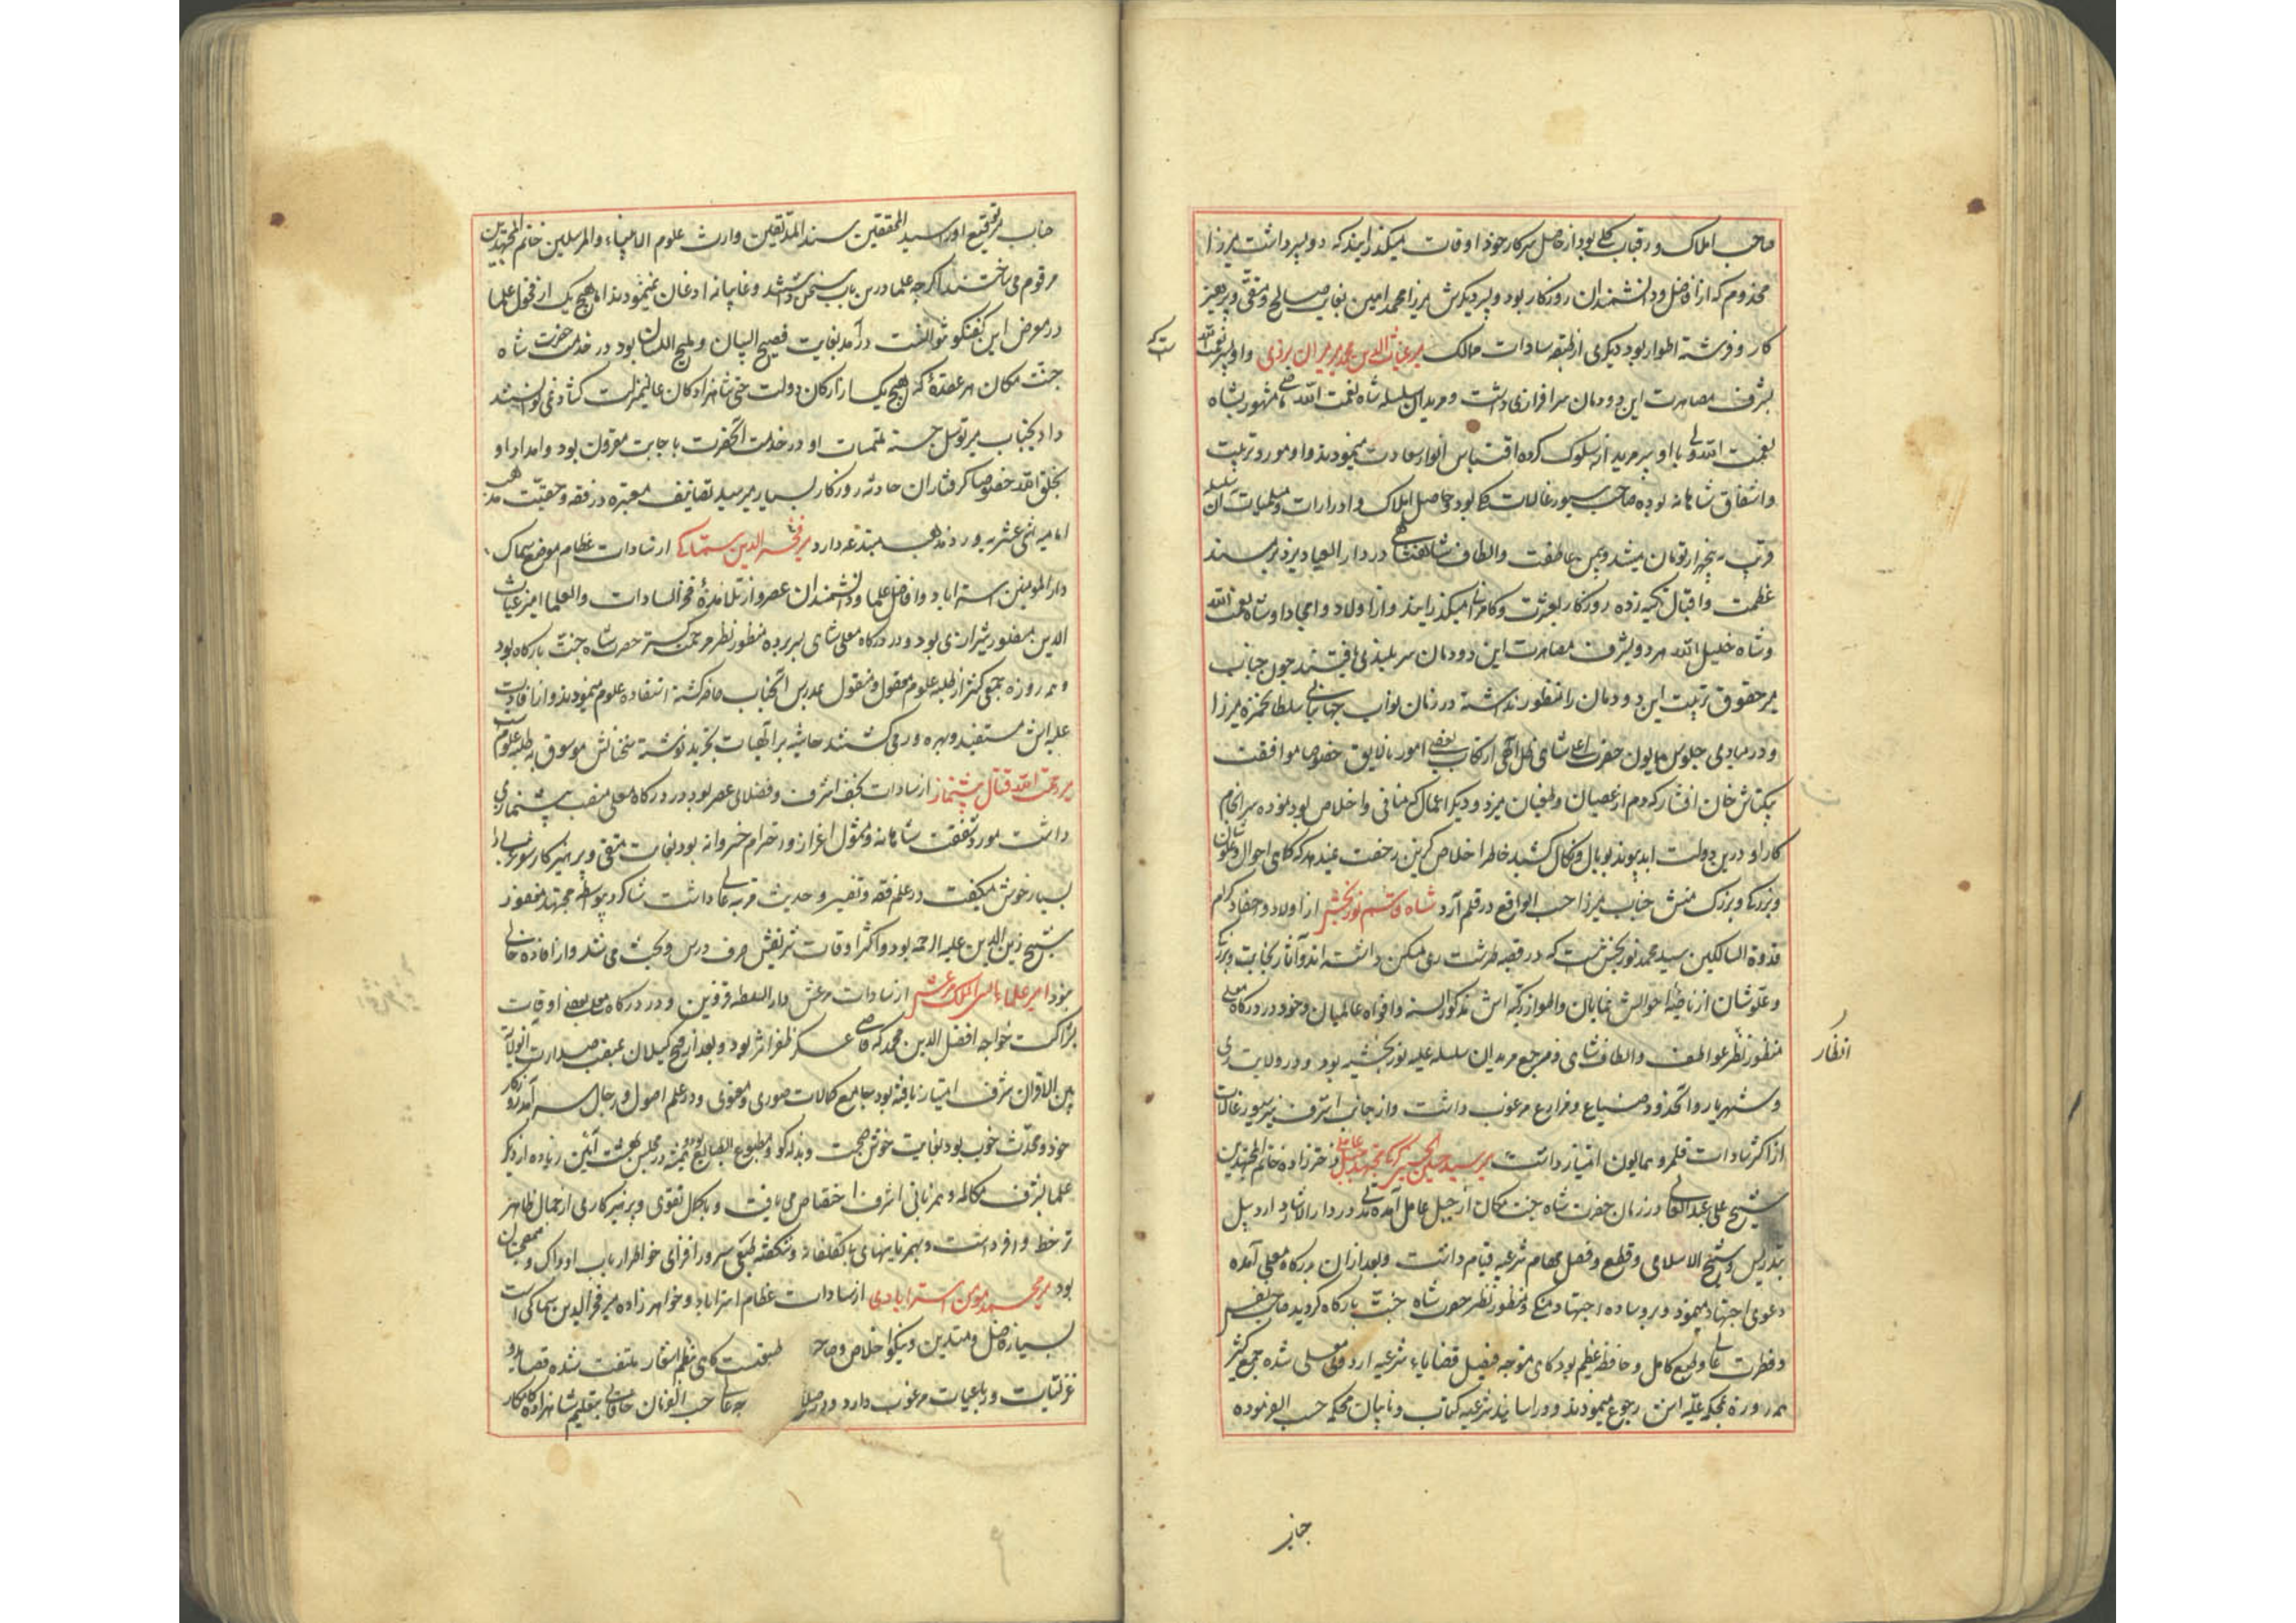 صاحب املاک و رقبات کلی بود از حاصل سرکار خود اوقات میگذرانیدند که دو پسر داشت میرزا
مخدوم که از افاضل و دانشمندان روزکار بود و پسر دیکرش میرزا محمد امین بغایت صالح و متقی و پرهیز
کار و فرشته اطوار بود دیکری از طبقه سادات ممالک میر غیاث الدین محمد میرمیران یزدی و او پسر شاه نعمت الله
بشرف مصاهرت این دودمان سرافرازی داشت و مریدان سلسله شاه نعمت الله مشهور بشاه
نعمت الله ولی با او پیر مریدانه سلوک کرده اقتباس انوار سعادت مینمودند و او مورد تربیت
و اشفاق شاهانه بوده صاحب سیورغالات کلی بود حاصل املاک و ادرارات و مسلمیات آن سلسله
قریب به پنجهزار تومان میشد و بیمن عاطفت و الطاف شاهنشاهی در دار العباد یزد بر مسند
عظمت و اقبال تکیه زده روزکار بعشرت و کامرانی میکذرانید و از اولاد و امجاد او شاه نعمت الله
و شاه خلیل الله هر دو بشرف مصاهرت این دودمان سربلندی یافتند چون جناب
میر حقوق تربیت این دودمان را منظور نداشته در زمان نواب جهانبانی سلطان حمزه میرزا
و در مبادی جلوس همایون حضرت اعلی شاهی ظل اللهی ارتکاب بعضی امور نالایق خصوصا موافقت
بکتاش خان افشار که دم از عصیان و طغیان میزد و دیکر اعمال که منافی و اخلاص بود نموده سرانجام
کار او درین دولت ابد پیوند بوبال و نکال کشید خاطر اخلاص کزین رخصت نمیدهد که کماهی احوال
و بزرکی و بزرک منش جناب میرزا حسب الواقع در قلم آرد شاه قاسم نوربخش از اولاد و احفاد کرام
قدوة السالکین سید محمد نوربخش است که در قصبه طرشت ری متمکن داشته اند و آثار نجابت و بزرکی
و علو شان از ناصیه احوالش نمایان و اطوار زکیه اش مذکور السنه و افواه عالمیان و خود در درکاه معلی
منظور نظر عواطف و الطاف شاهی و مرجع مریدان سلسله علیه نوربخشیه بود و در ولایت ری
و شهریار و انحدود ضیاع و مزارع مرغوب داشت و از جانب اشرف نیز سیورغالات
از اکثر سادات قلمرو همایون امتیاز داشت میر سید حسین جبل عاملی دختر زاده خاتم المجتهدین
شیخ علی عبد العالی در زمان حضرت شاه جنت مکان از جبل عامل آمده مدتی در دار الارشاد اردبیل
بتدریس و شیخ الاسلامی و قطع و فصل مهام شرعیه قیام داشت و بعد از ان بدرکاه معلی آمده
دعوی اجتهاد مینمود و بر وساده اجتهاد متکی و منظور نظر حضرت شاه جنت بارکاه کردید صاحب نفس
و فطرت عالی و طبع کامل و حافظه عظیم بود کاهی متوجه فیصل قضایاء شرعیه اردوی معلی شده جمع کثیر
همه روزه بمحکمه علیه اش رجوع مینمودند و در اسانید شرعیه کتاب و نایبان محکمه حسب الفرموده
انظار
جناب
جناب میر توقیع او را سید المحققین سند المدققین وارث علوم الانبیاء و المرسلین خاتم المجتهدین
مرقوم می ساختند اکرچه علما درین باب سخن داشتند و غایبانه اذعان نمینمودند اما هیچ یک از فحول علما
در معرض این کفتکو نتوانست درآمد بغایت فصیح البیان و ملیح اللسان بود در خدمت حضرت شاه
جنت مکان هر عقده که هیچ یک از ارکان دولت حتی شاهزادکان عالیمنزلت کشاد نمی توانستند
داد بجناب میر توسل جسته ملتمسات او در خدمت آنحضرت باجابت مقرون بود و امداد او
بخلق الله خصوصا کرفتاران حادثه روزکار بسیار میرسید تصانیف معتبره در فقه و حقیت مذهب
امامیه اثنی عشریه و رد مذاهب مبتدعه دارد میر فخر الدین سماکی از سادات عظام موضع سماک
دار المومنین استراباد و افاضل علما و دانشمندان عصر و از تلامذه فخر السادات و العلما امیر غیاث
الدین منصور شیرازی بود و در درکاه معلی شاهی بسر برده منظور نظر مرحمت کستر حضرت شاه جنت بارکاه بود
و همه روزه جمعی کثیر از طلبه علوم معقول و منقول بمدرس آنجناب حاضر کشته استفاده علوم مینمودند و از افادت
علیه اش مستفید و بهره ور می کشتند حاشیه بر الهیات تجرید نوشته سخنانش موسوق به طلبه علوم است
میر رحمت الله قتال پیشنماز از سادات نجف اشرف و فضلای عصر بود در درکاه معلی منصب پیشنمازی
داشت مورد شفقت شاهانه و مشمول اعزاز و احترام خسروانه بود بغایت متقی و پرهیزکار شعر عربی را
بسیار خوش میکفت در علم فقه و تفسیر و حدیث مرتبه عالی داشت شاکرد بواسطه مجتهد مغفور
شیخ زین الدین علیه الرحمه بود و اکثر اوقات شریفش صرف درس و بحث می شد و از افاده خالی
نبود امیر علاء الملک مرعشی از سادات مرعش دار السلطنه قزوین و در درکاه معلی بعضی اوقات
بشراکت خواجه افضل الدین محمد ترکه قاضی عسکر ظفر اثر بود و بعد از فتح کیلان بمنصب صدارت آنولایت
بین الاقران شرف امتیاز یافته بود جامع کمالات صوری و معنوی و در علم اصول و رجال سرآمد روزکار
خود و محدث خوب بود بغایت خوش صحبت و بذله کو و مطبوع الطبایع بود همیشه در مجلس بهشت آئین زیاده از دیکر
علما بشرف مکالمه و همزبانی اشرف اختصاص می یافت و با کمال تقوی و پرهیزکاری از جمال ظاهر
نیز حظ وافر داشت و بهمزبانیهای بی تکلفانه و شکفته طبعی سرور افزای خواطر ارباب ادراک و هم صحبتان
بود میر محمد مومن استرابادی از سادات عظام استراباد و خواهر زاده میر فخر الدین سماکی است
بسیار فاضل و متدین و نیکو اخلاص و صاحب طبع است کاهی بنظم اشعار ملتفت شده قصاید و
غزلیات و رباعیات مرغوب دارد حسب الفرمان بتعلیم شاهزاده